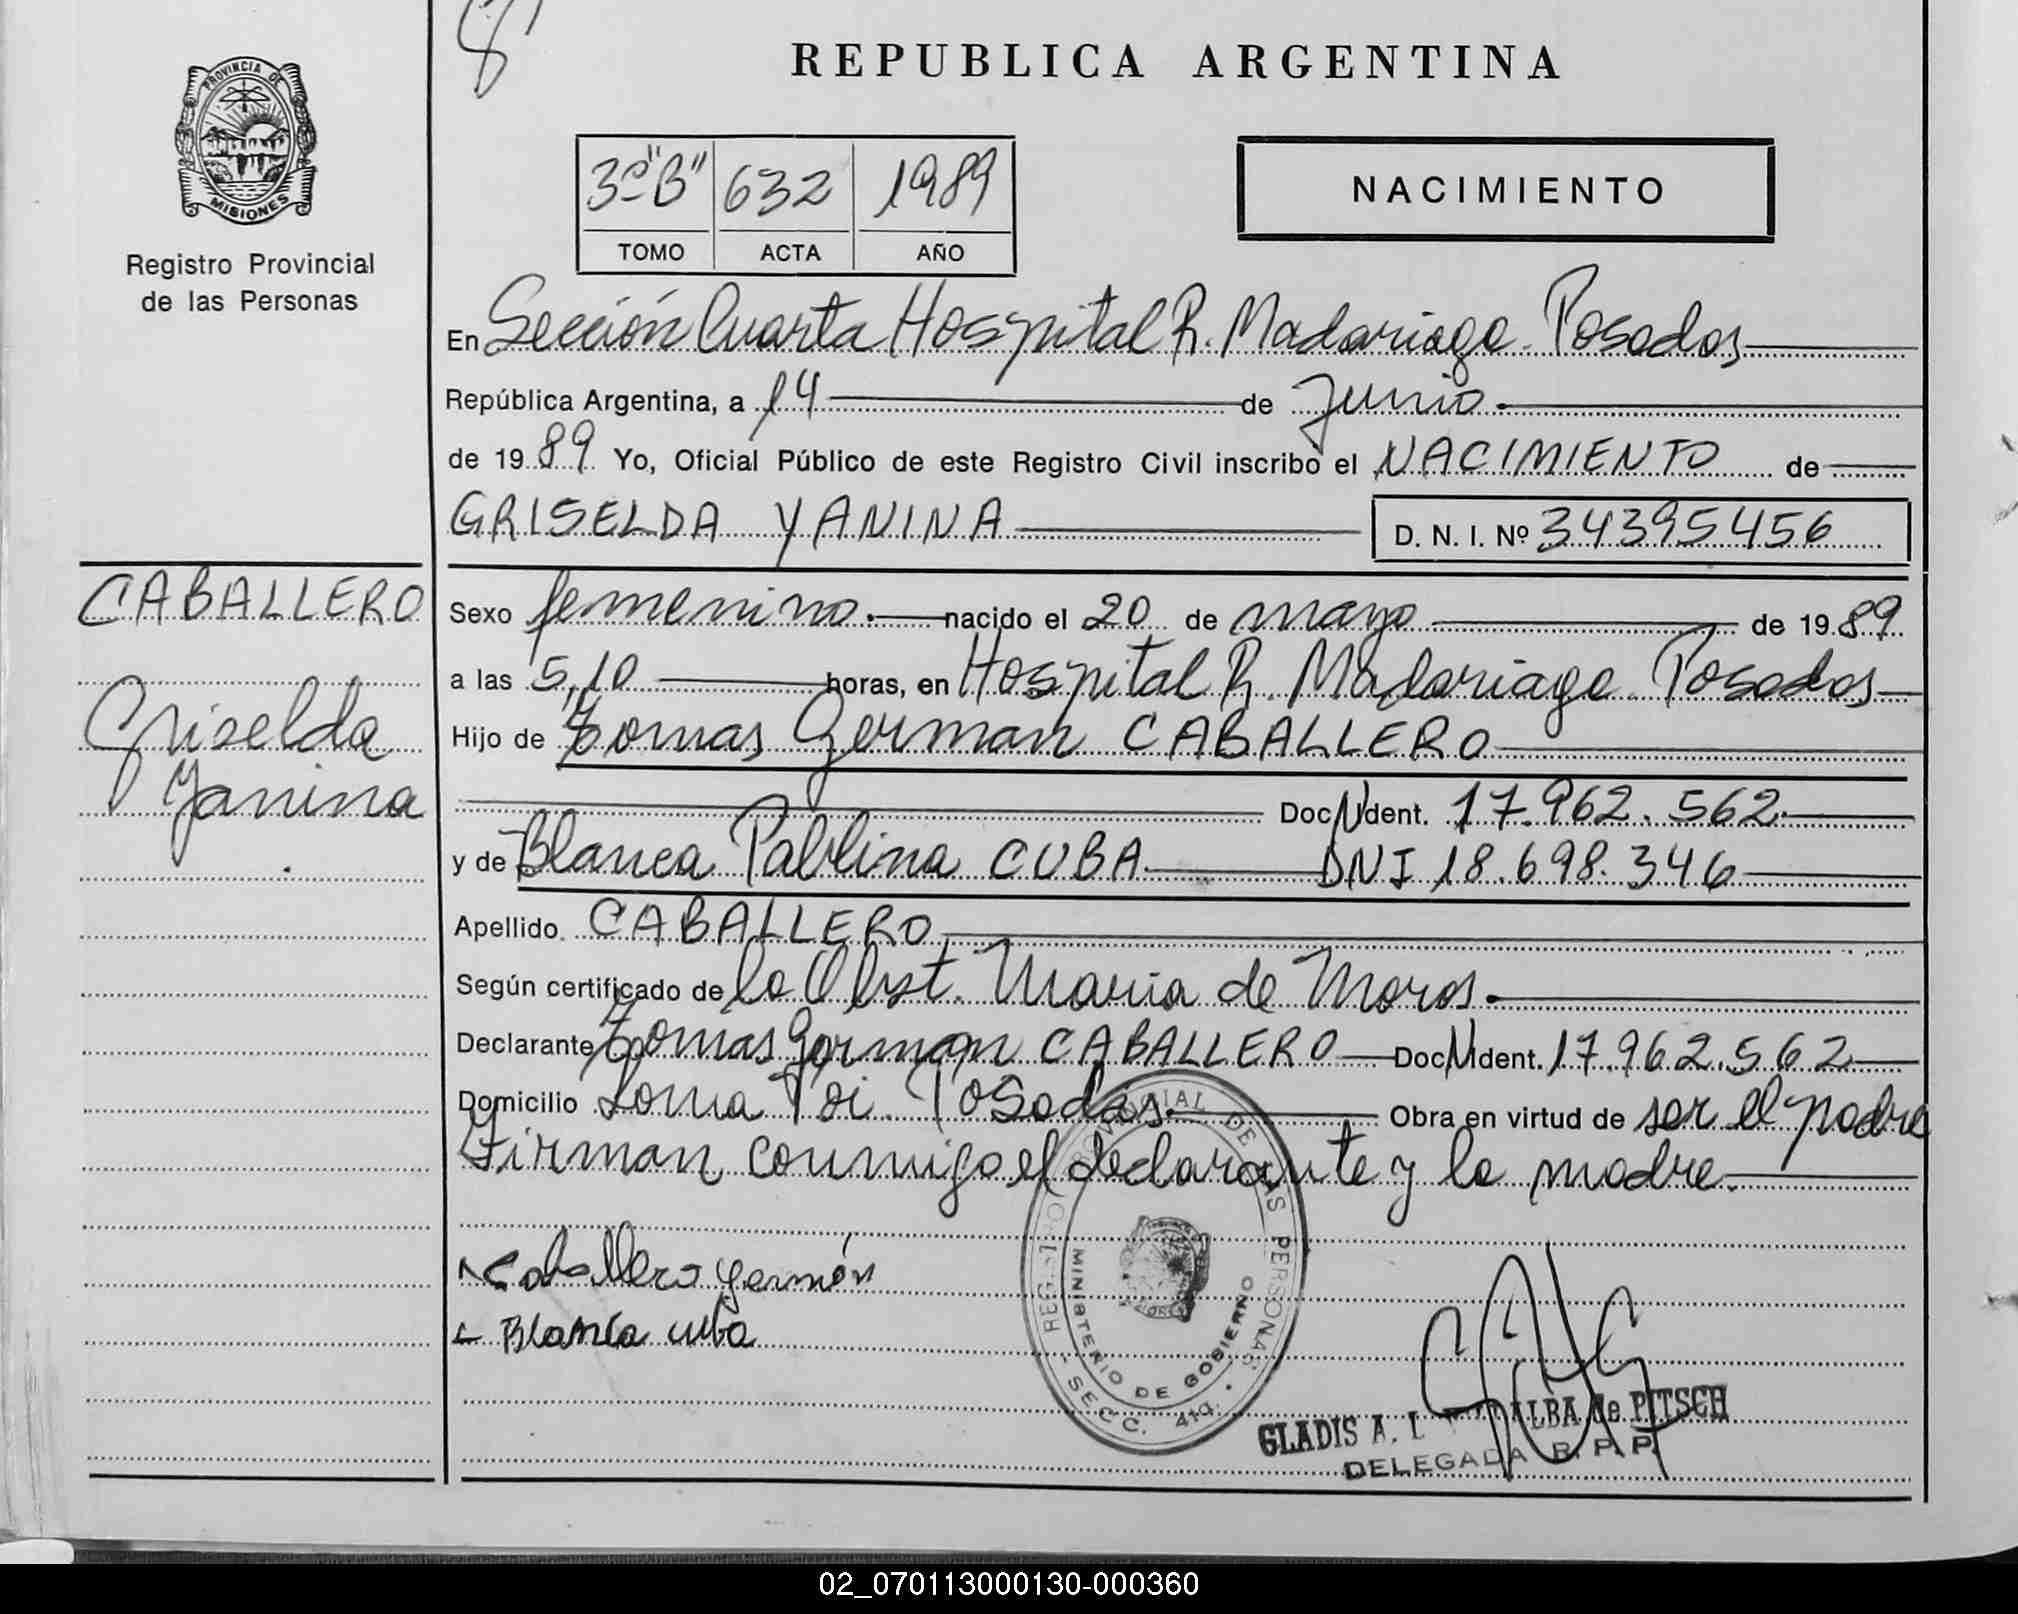 REPUBLICA ARGENTINA
PROVINCIA DE
MISIONES
Registro Provincial
de las Personas
3º "B" 632 1989
TOMO ACTA AÑO
NACIMIENTO
En Sección Cuarta Hospital R. Madariaga Posadas
República Argentina, a 14 de Junio.
de 1989 Yo, Oficial Público de este Registro Civil inscribo el NACIMIENTO de
GRISELDA YANINA D. N. I. Nº 34395456
CABALLERO
Griselda
Yanina
Sexo femenino. nacido el 20 de mayo de 1989
a las 5,10 horas, en Hospital R. Madariaga Posadas
Hijo de Tomas German CABALLERO
Doc. Ident. 17.962.562
y de Blanca Pablina CUBA DNI 18.698.346
Apellido CABALLERO
Según certificado de la Obst. Maria de Moros.
Declarante Tomas German CABALLERO Doc. Ident. 17.962.562
Domicilio Loma Poi. Posadas. Obra en virtud de ser el padre
Firman conmigo el declarante y la madre.
Caballero germán
Blanca cuba
REGISTRO PROVINCIAL DE LAS PERSONAS
MINISTERIO DE GOBIERNO
SECC. 4ta.
GLADIS A. ALBA de PITSCH
DELEGADA R. P. P.
02_070113000130-000360